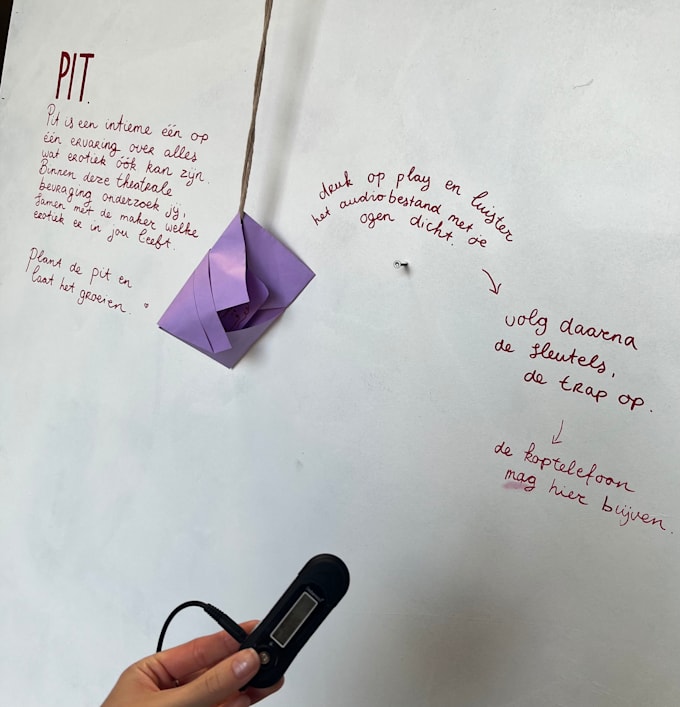 PIT.
Pit is een intieme één op
één ervaring over alles
wat erotiek óók kan zijn.
Binnen deze theatrale
bevraging onderzoek jij,
samen met de maker welke
erotiek er in jou leeft.
Plant de pit en
laat het groeien.
druk op play en luister
het audiobestand met je
ogen dicht.
volg daarna
de sleutels,
de trap op.
de koptelefoon
mag hier blijven.